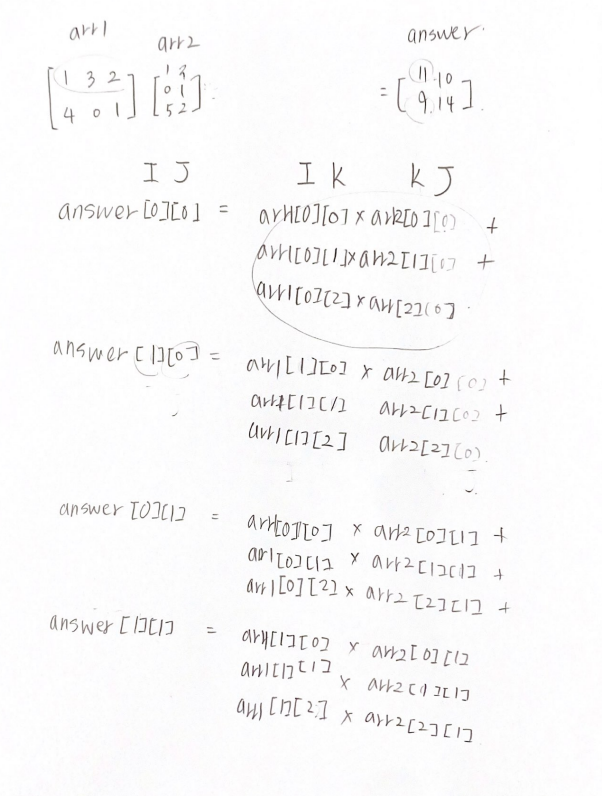 arr1 arr2 answer
1 3 2
4 0 1
0 1
5 2
= 11 10
9 14
I J I k k J
answer [0][0] = arr1[0][0] x arr2[0][0] +
arr1[0][1] x arr2[1][0] +
arr1[0][2] x arr[2][0]
answer [1][0] = arr1[1][0] x arr2[0][0] +
arr1[1][1] arr2[1][0] +
arr1[1][2] arr2[2][0]
answer [0][1] = arr1[0][0] x arr2[0][1] +
arr1[0][1] x arr2[1][1] +
arr1[0][2] x arr2[2][1] +
answer [1][1] = arr1[1][0] x arr2[0][1]
arr1[1][1] x arr2[1][1]
arr1[1][2] x arr2[2][1]